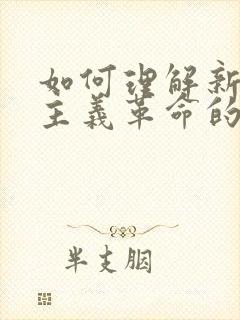 如何理解新
主义革命的
半支胭